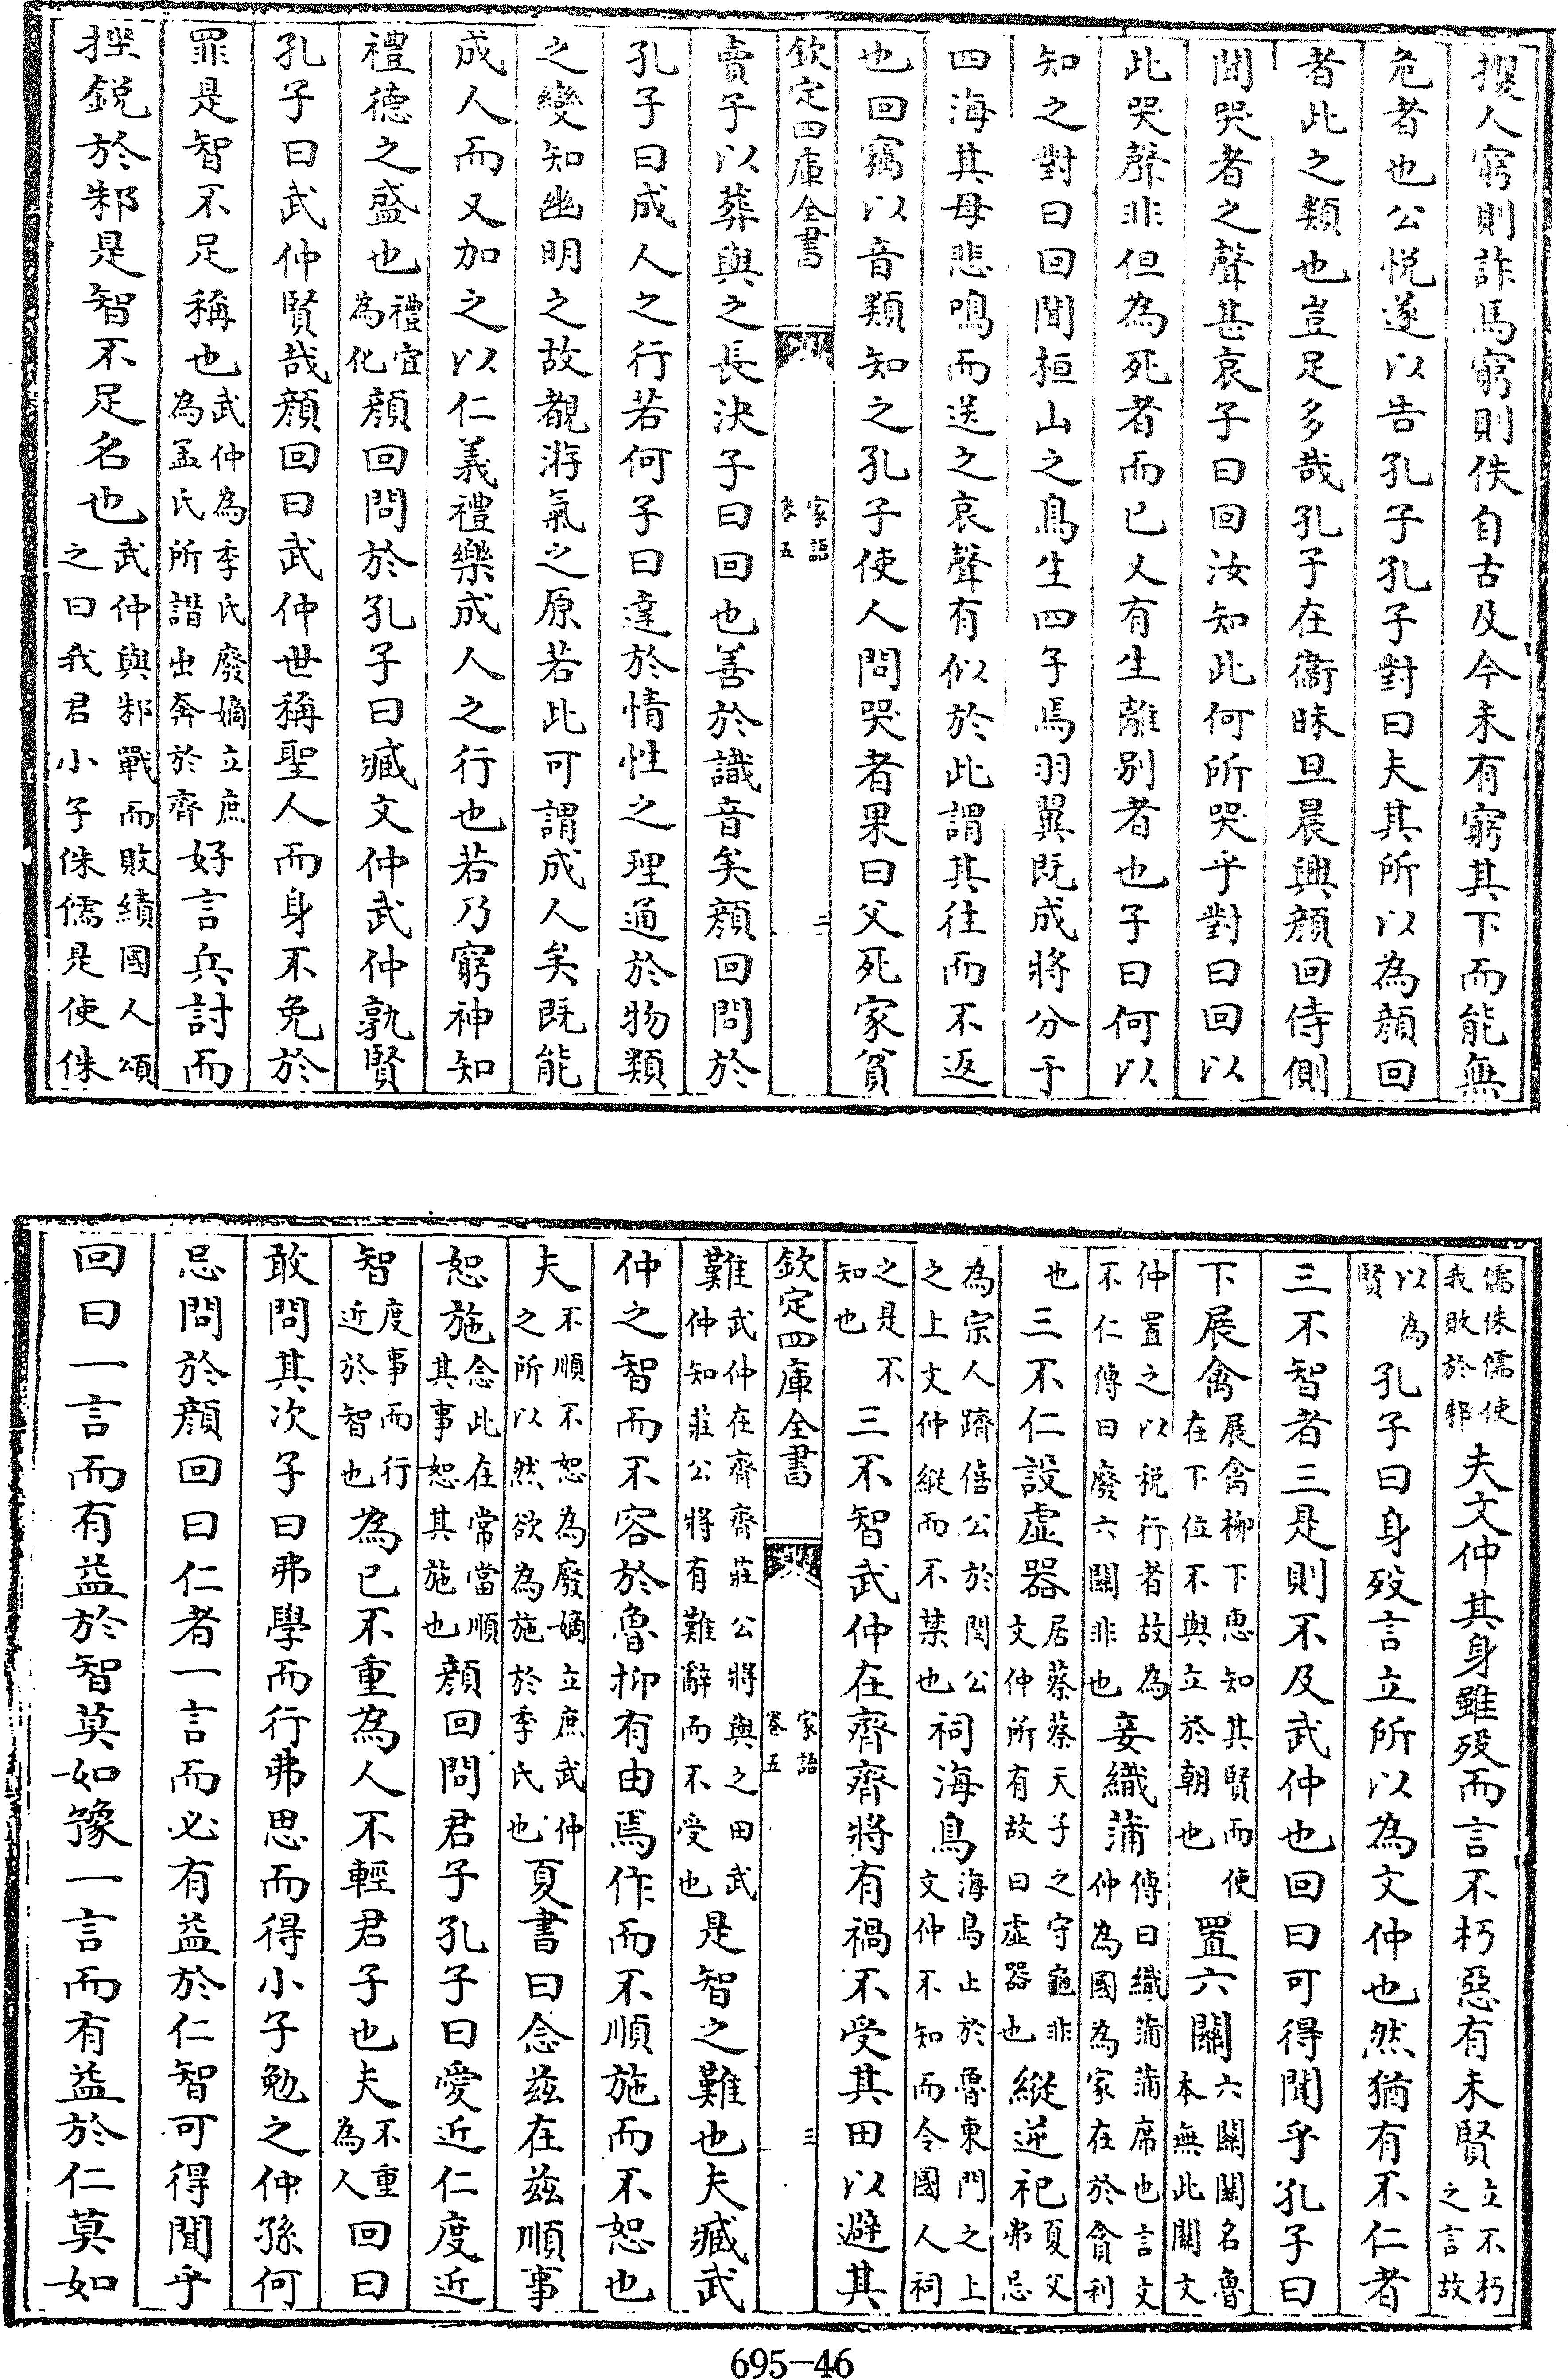 攫人窮則詐馬窮則佚自古及今未有窮其下而能無
危者也公悦遂以告孔子孔子對曰夫其所以為顔回
者此之類也豈足多哉孔子在衞昧旦晨興顔回侍側
聞哭者之聲甚哀子曰回汝知此何所哭乎對曰回以
此哭聲非但為死者而已又有生離别者也子曰何以
知之對曰回聞桓山之鳥生四子焉羽翼既成將分于
四海其母悲鳴而送之哀聲有似於此謂其往而不返
也回竊以音類知之孔子使人問哭者果曰父死家貧
欽定四庫全書 家語 卷五 二
賣子以葬與之長決子曰回也善於識音矣顔回問於
孔子曰成人之行若何子曰達於情性之理通於物類
之變知幽明之故覩游氣之原若此可謂成人矣既能
成人而又加之以仁義禮樂成人之行也若乃窮神知
禮德之盛也禮宜為化顔回問於孔子曰臧文仲武仲孰賢
孔子曰武仲賢哉顔回曰武仲世稱聖人而身不免於
罪是智不足稱也武仲為季氏廢嫡立庶為孟氏所譖出奔於齊好言兵討而
挫鋭於邾是智不足名也武仲與邾戰而敗績國人頌之曰我君小子侏儒是使侏
儒侏儒使我敗於邾夫文仲其身雖殁而言不朽惡有未賢立不朽之言故
以為賢孔子曰身殁言立所以為文仲也然猶有不仁者
三不智者三是則不及武仲也回曰可得聞乎孔子曰
下展禽展禽柳下惠知其賢而使在下位不與立於朝也置六關六關關名魯本無此關文
仲置之以税行者故為不仁傳曰廢六關非也妾織蒲傳曰織蒲蒲席也言文仲為國為家在於貪利
也三不仁設虚器居蔡蔡天子之守龜非文仲所有故曰虚器也縱逆祀夏父弗忌
為宗人躋僖公於閔公之上文仲縱而不禁也祠海鳥海鳥止於魯東門之上文仲不知而令國人祠
之是不知也三不智武仲在齊齊將有禍不受其田以避其
欽定四庫全書 家語 卷五 三
難武仲在齊齊莊公將與之田武仲知莊公將有難辭而不受也是智之難也夫臧武
仲之智而不容於魯抑有由焉作而不順施而不恕也
夫不順不恕為廢嫡立庶武仲之所以然欲為施於季氏也夏書曰念兹在兹順事
恕施念此在常當順其事恕其施也顔回問君子孔子曰愛近仁度近
智度事而行近於智也為已不重為人不輕君子也夫不重為人回曰
敢問其次子曰弗學而行弗思而得小子勉之仲孫何
忌問於顔回曰仁者一言而必有益於仁智可得聞乎
回曰一言而有益於智莫如豫一言而有益於仁莫如
695-46